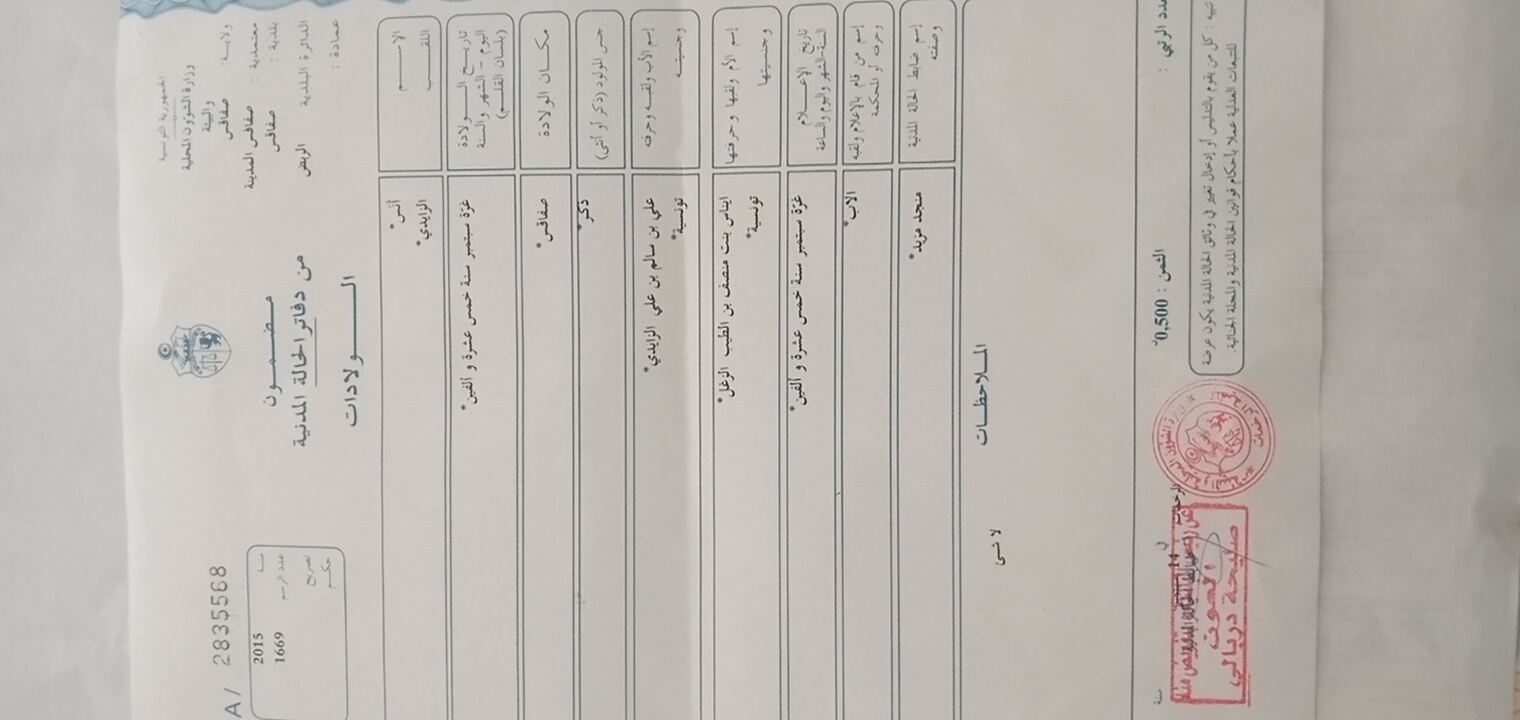 الجمهورية التونسية
وزارة الشؤون المحلية
والبيئة
ولاية: صفاقس
معتمدية : صفاقس المدينة
بلدية : صفاقس
الدائرة البلدية الربض
عمادة :
مضمون
من دفاتر الحالة المدنية
الولادات
A/ 2835568
سنة 2015
عدد الرسم 1669
تصريح
حكم
الاسم أنس*
اللقب الزايدي*
تاريخ الولادة
(اليوم - الشهر والسنة
بلسان القلم) غرّة سبتمبر سنة خمس عشرة و ألفين*
مكان الولادة صفاقس*
جنس المولود (ذكر أو أنثى) ذكر*
إسم الأب ولقبه وحرفته علي بن سالم بن علي الزايدي*
وجنسيته تونسية*
إسم الأم ولقبها وحرفتها ايناس بنت منصف بن الطيب الزغل*
وجنسيتها تونسية*
تاريخ الإعلام
السنة-الشهر واليوم والساعة غرّة سبتمبر سنة خمس عشرة و ألفين*
إسم من قام بالإعلام ولقبه
وحرفته أو المحكمة الاب*
إسم ضابط الحالة المدنية
وصفته منجد مزيد*
الملاحظات
لا شئ
عدد الرقمي :
الثمن : 0,500د
تنبيه : كل من يقوم بالتدليس أو إدخال تغيير في وثائق الحالة المدنية يكون عرضة
للتتبعات العدلية عملا بأحكام قوانين الحالة المدنية والمجلة الجنائية.
في 14
سنة
العون
صليحة دربالي